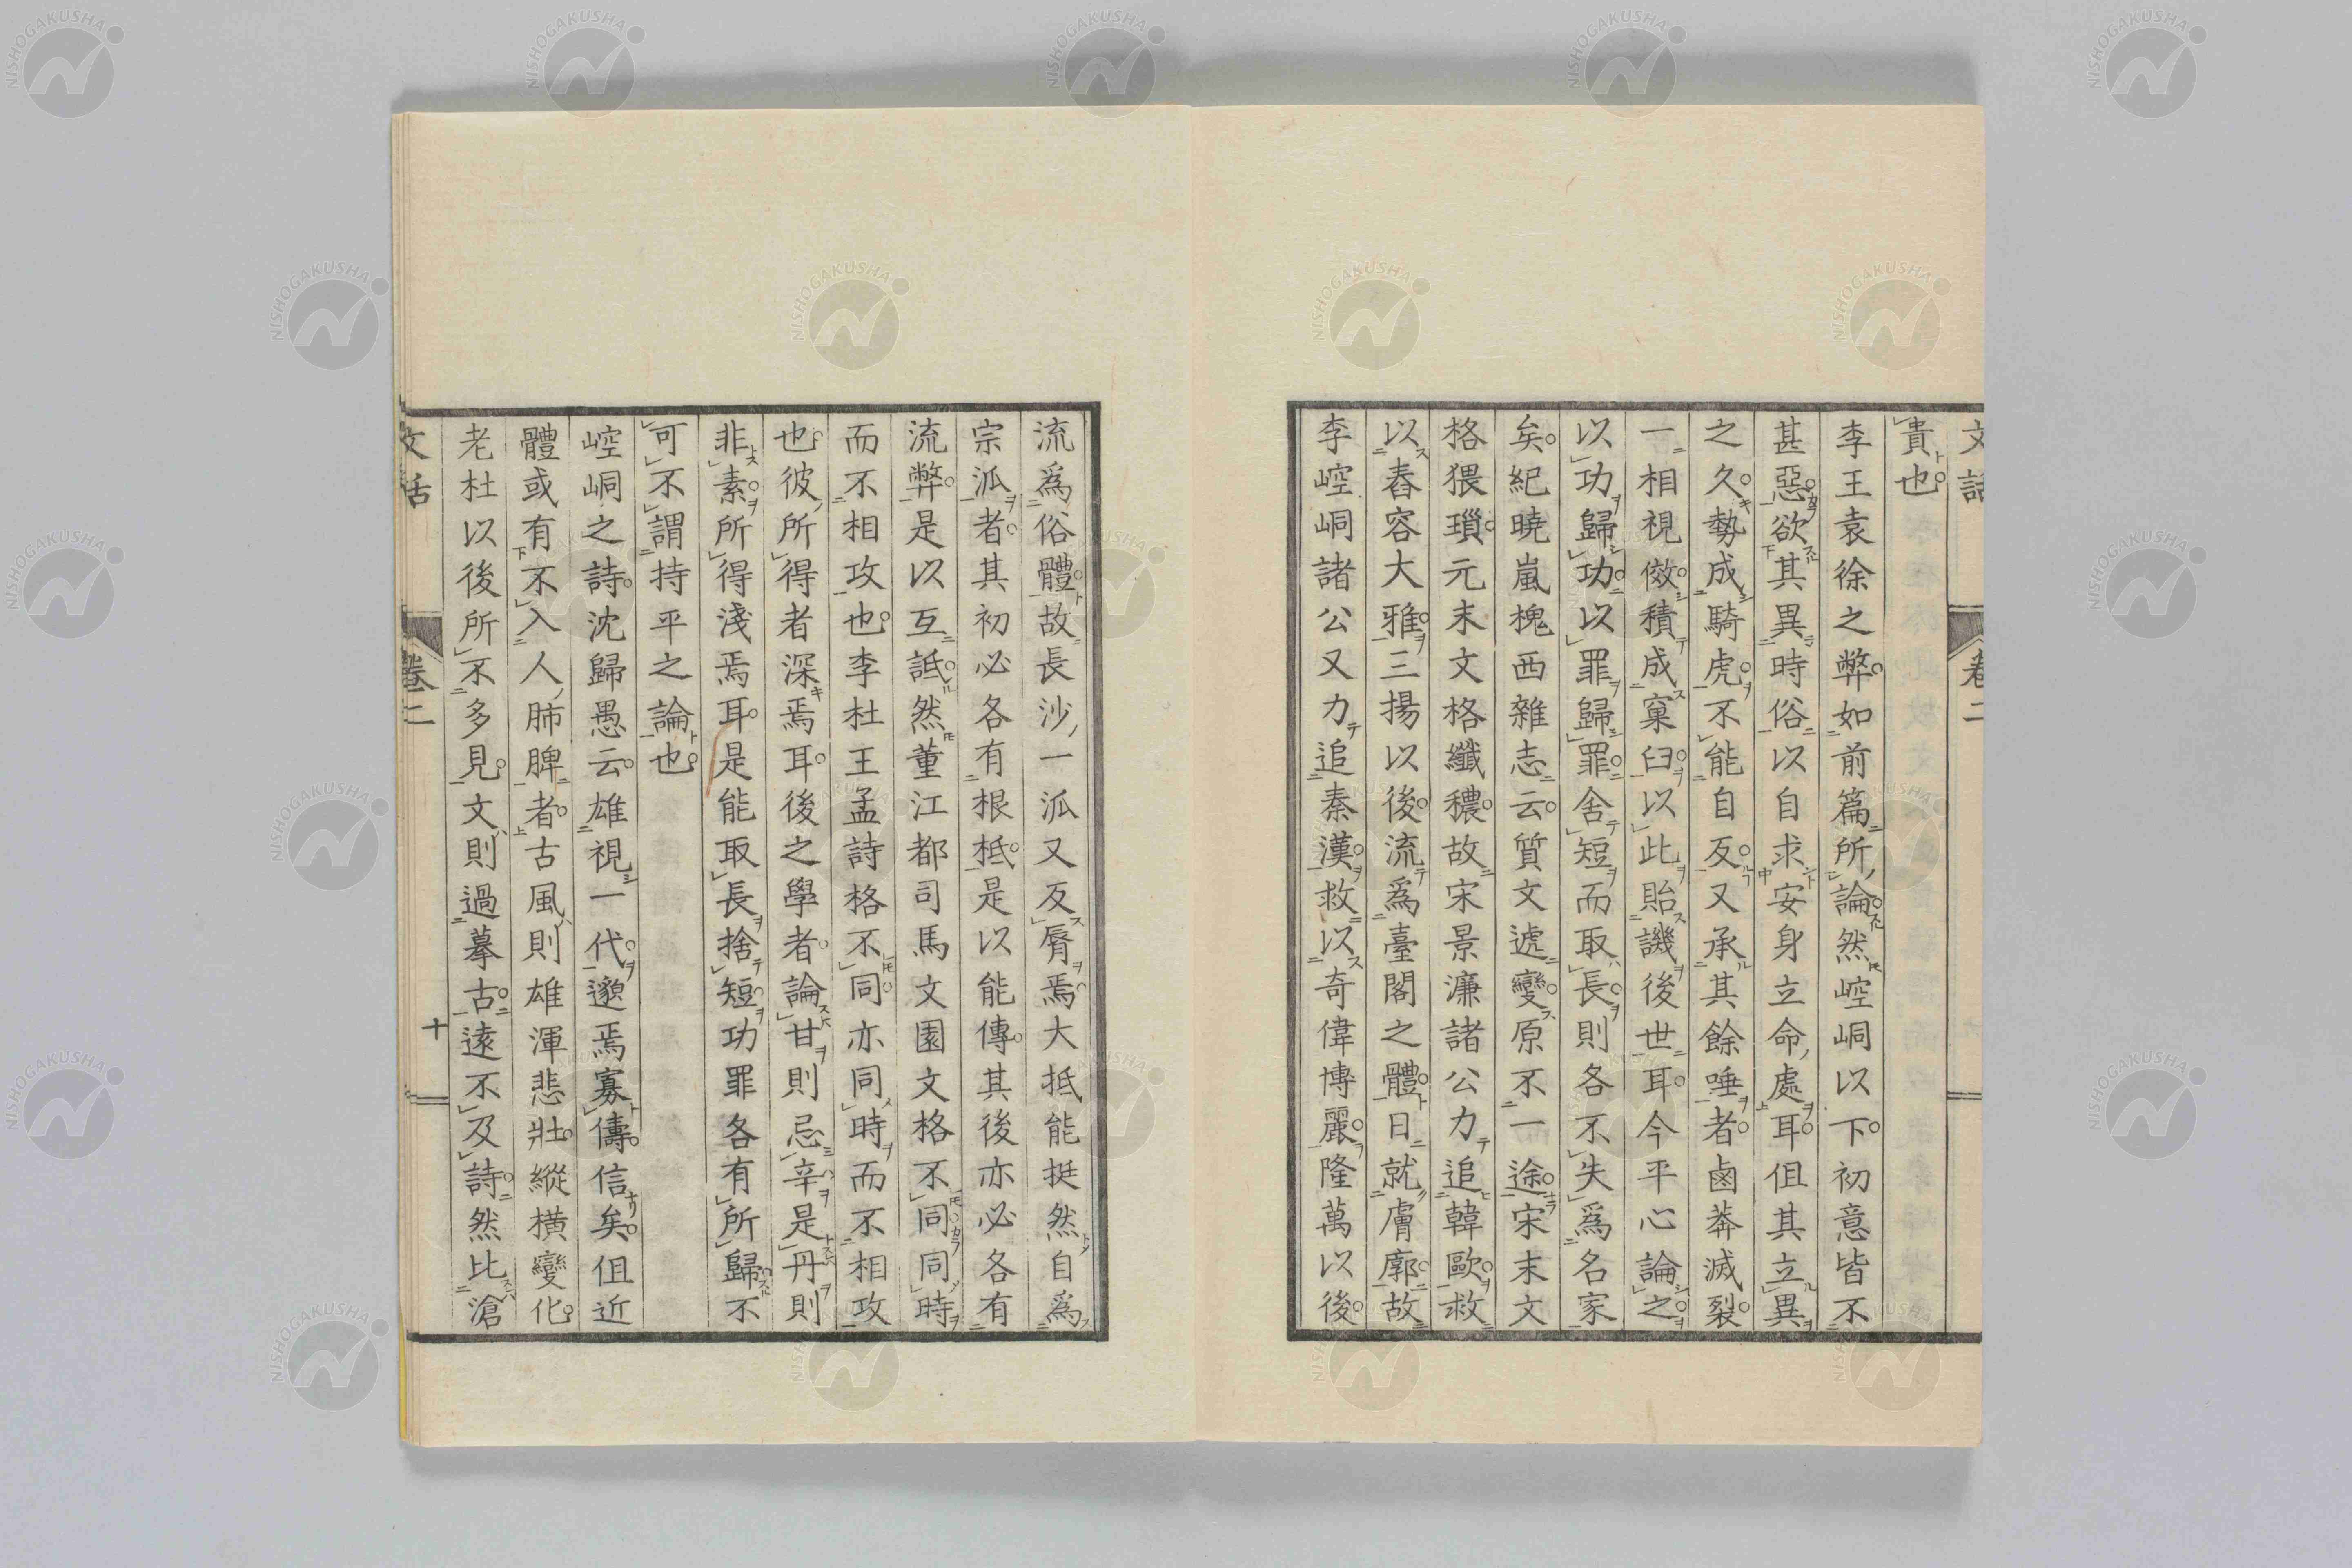 文話
卷二
貴也
李王袁徐之弊如前篇所論然崆峒以下初意皆不
甚惡欲其異時俗以自求安身立命處耳但其立異
之久勢成騎虎不能自反又承其餘唾者鹵莽滅裂
一相視傚積成窠臼以此貽譏後世耳今平心論之
以功歸功以罪歸罪舍短而取長則各不失爲名家
矣紀曉嵐槐西雜志云質文遞變原不一途宋末文
格猥瑣元末文格纖穠故宋景濂諸公力追韓歐救
以舂容大雅三揚以後流爲臺閣之體日就膚廓故
李崆峒諸公又力追秦漢救以奇偉博麗隆萬以後
流爲俗體故長沙一泒又反脣焉大抵能挺然自爲
宗泒者其初必各有根柢是以能傳其後亦必各有
流弊是以互詆然董江都司馬文園文格不同同時
而不相攻也李杜王孟詩格不同亦同時而不相攻
也彼所得者深焉耳後之學者論甘則忌辛是丹則
非素所得淺焉耳是能取長捨短功罪各有所歸不
可不謂持平之論也
崆峒之詩沈歸愚云雄視一代邈焉寡儔信矣但近
體或有不入人肺脾者古風則雄渾悲壯縱橫變化
老杜以後所不多見文則過摹古遠不及詩然比滄
文話
卷二
十
NISHOGAKUSHA